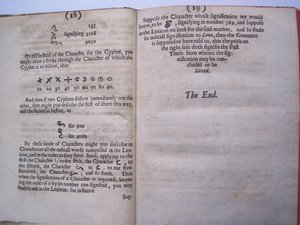 ( 18 )
signifying 3526
Or if instead of the Character for the Cypher, you
might draw a stroke through the Character of which
the Cypher is to insue, thus
10 20 30 40 50 60 70 80 90.
And then if two Cyphers follow immediately one the
other, then might you describe the first of them this way,
and the second as before, as
for
for
By these kinde of Characters might you describe or
Characterize all the radical words comprised in the Lexi-
con, and in the order as they there stand, applying to the
first the Character to the sixth, the Character to
the the Character to the five-
hundredth, the Character and so forth. Thus
when the signification of a Character is required, know-
ing the order of it by its number consignified, you may
hunt it out in the Lexicon: for instance:
Sup-
( 19 )
Suppose the Character whose signification we would
know, to be signifying in number 369, and suppose
in the Lexicon we look for the said number, and so finde
its radical signification to Love, then the Grammer
is supposed to have told us, that the prick on
the right side doth signifie the Past
Tense. from whence the sig-
nification may be con-
cluded to be
Loved.
The End.